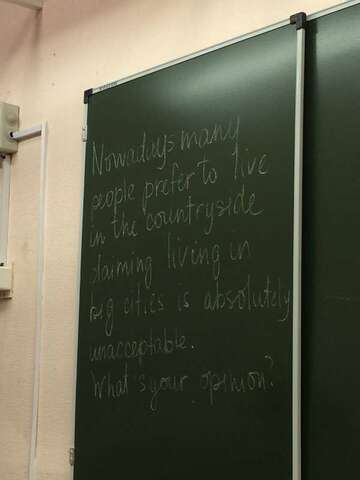 Nowadays many
people prefer to live
in the countryside
claiming living in
big cities is absolutely
unacceptable.
What's your opinion?